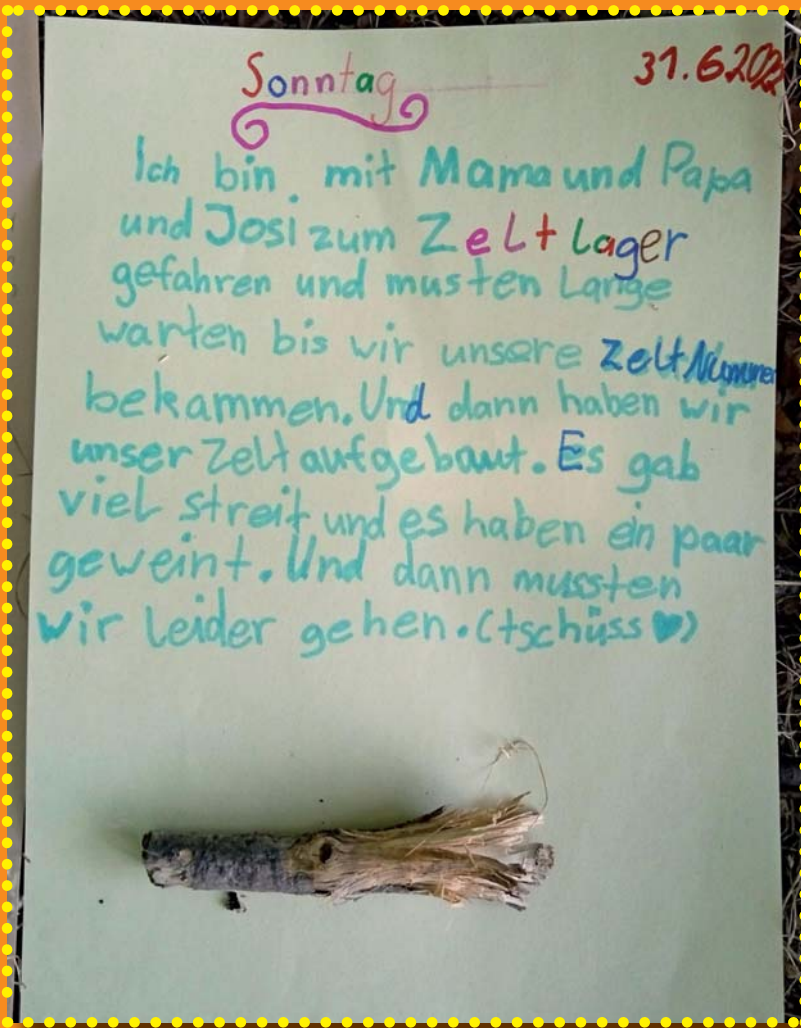 Sonntag 31.6.2022
Ich bin mit Mama und Papa
und Josi zum Zeltlager
gefahren und musten Lange
warten bis wir unsere Zelt Nummer
bekammen. Und dann haben wir
unser Zelt aufgebaut. Es gab
viel streit und es haben ein paar
geweint. Und dann mussten
wir leider gehen. (tschüss ♥)